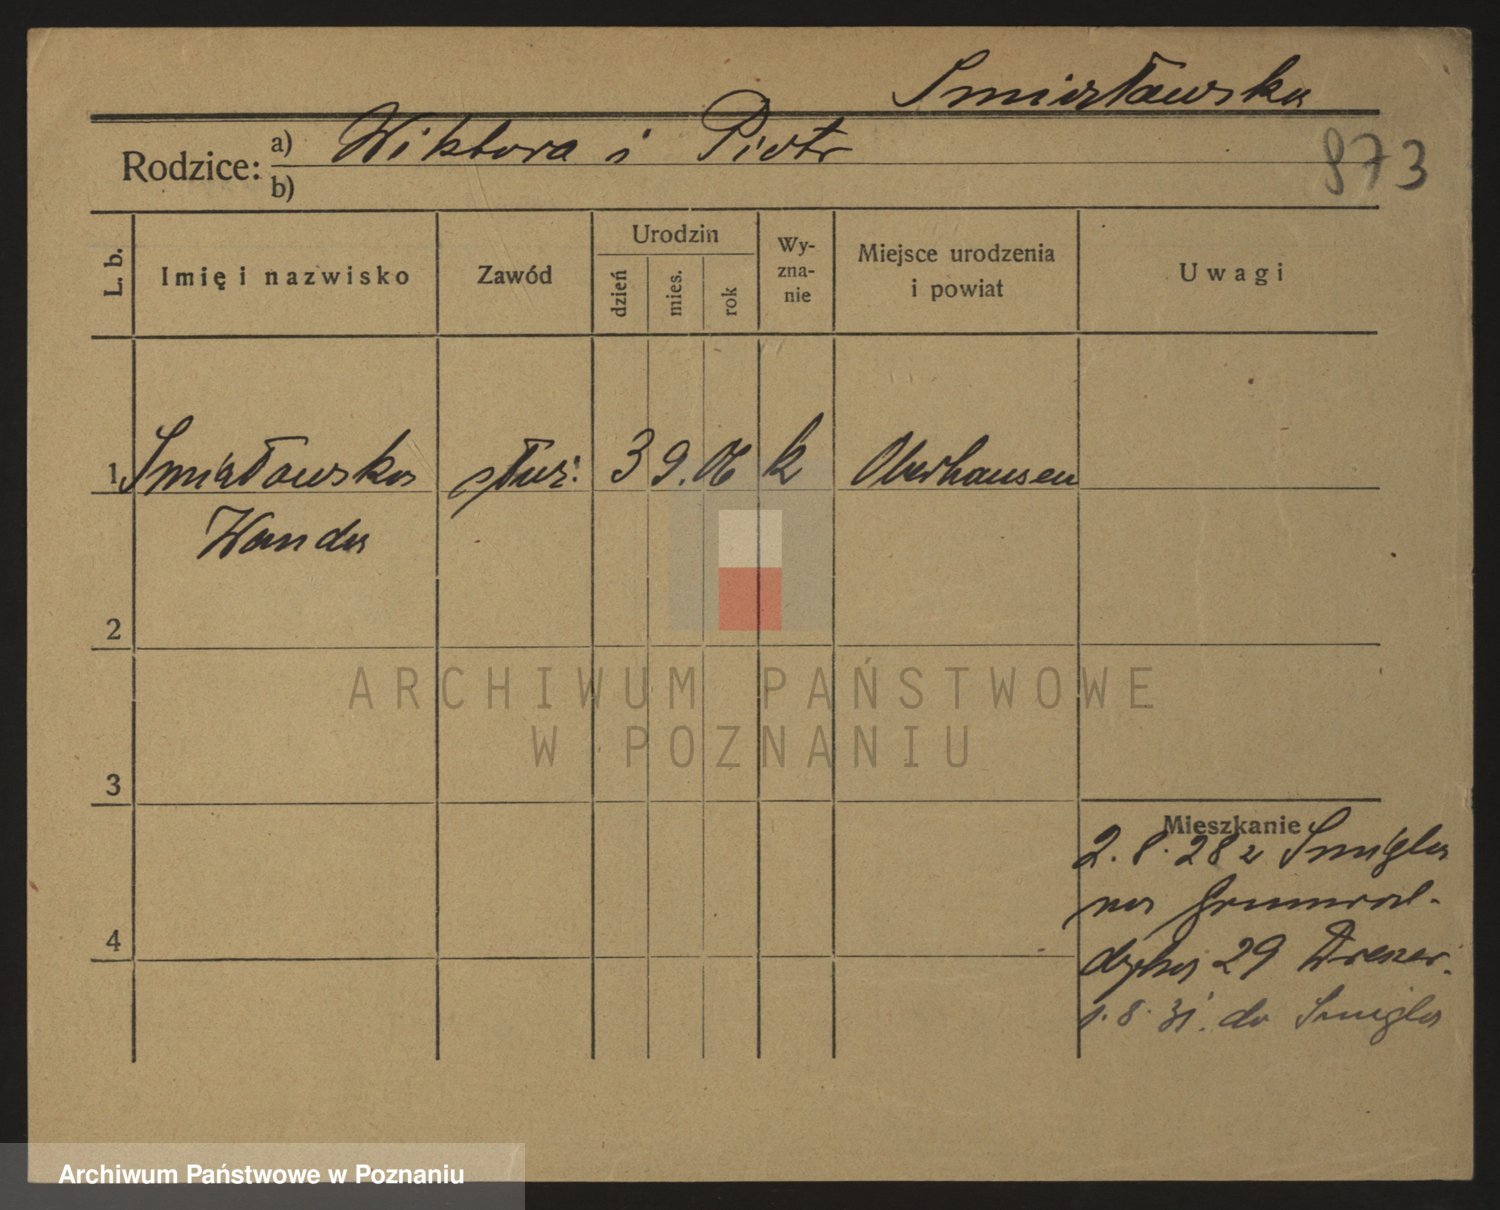 Smiełowska
Rodzice: a) Wiktora i Piotr
b)
873
L. b.
Imię i nazwisko
Zawód
Urodzin
dzień
mies.
rok
Wy-
zna-
nie
Miejsce urodzenia
i powiat
Uwagi
1 służ. 3 9. 06 k Oberhausen
Wanda
2
3
4
Mieszkanie
2. 8. 28 z Śmigla
na Grunwal-
dzka 29
1. 8. 31. do Śmigla
ARCHIWUM PAŃSTWOWE
W POZNANIU
Archiwum Państwowe w Poznaniu